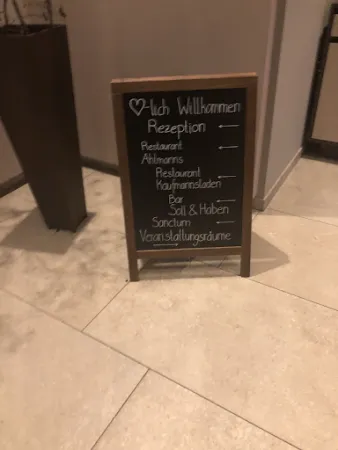 ♡-lich Willkommen
Rezeption ←
Restaurant ←
Ahlmanns
Restaurant ←
Kaufmannsladen
Bar ←
Soll & Haben
Sanctum ←
Veranstaltungsräume